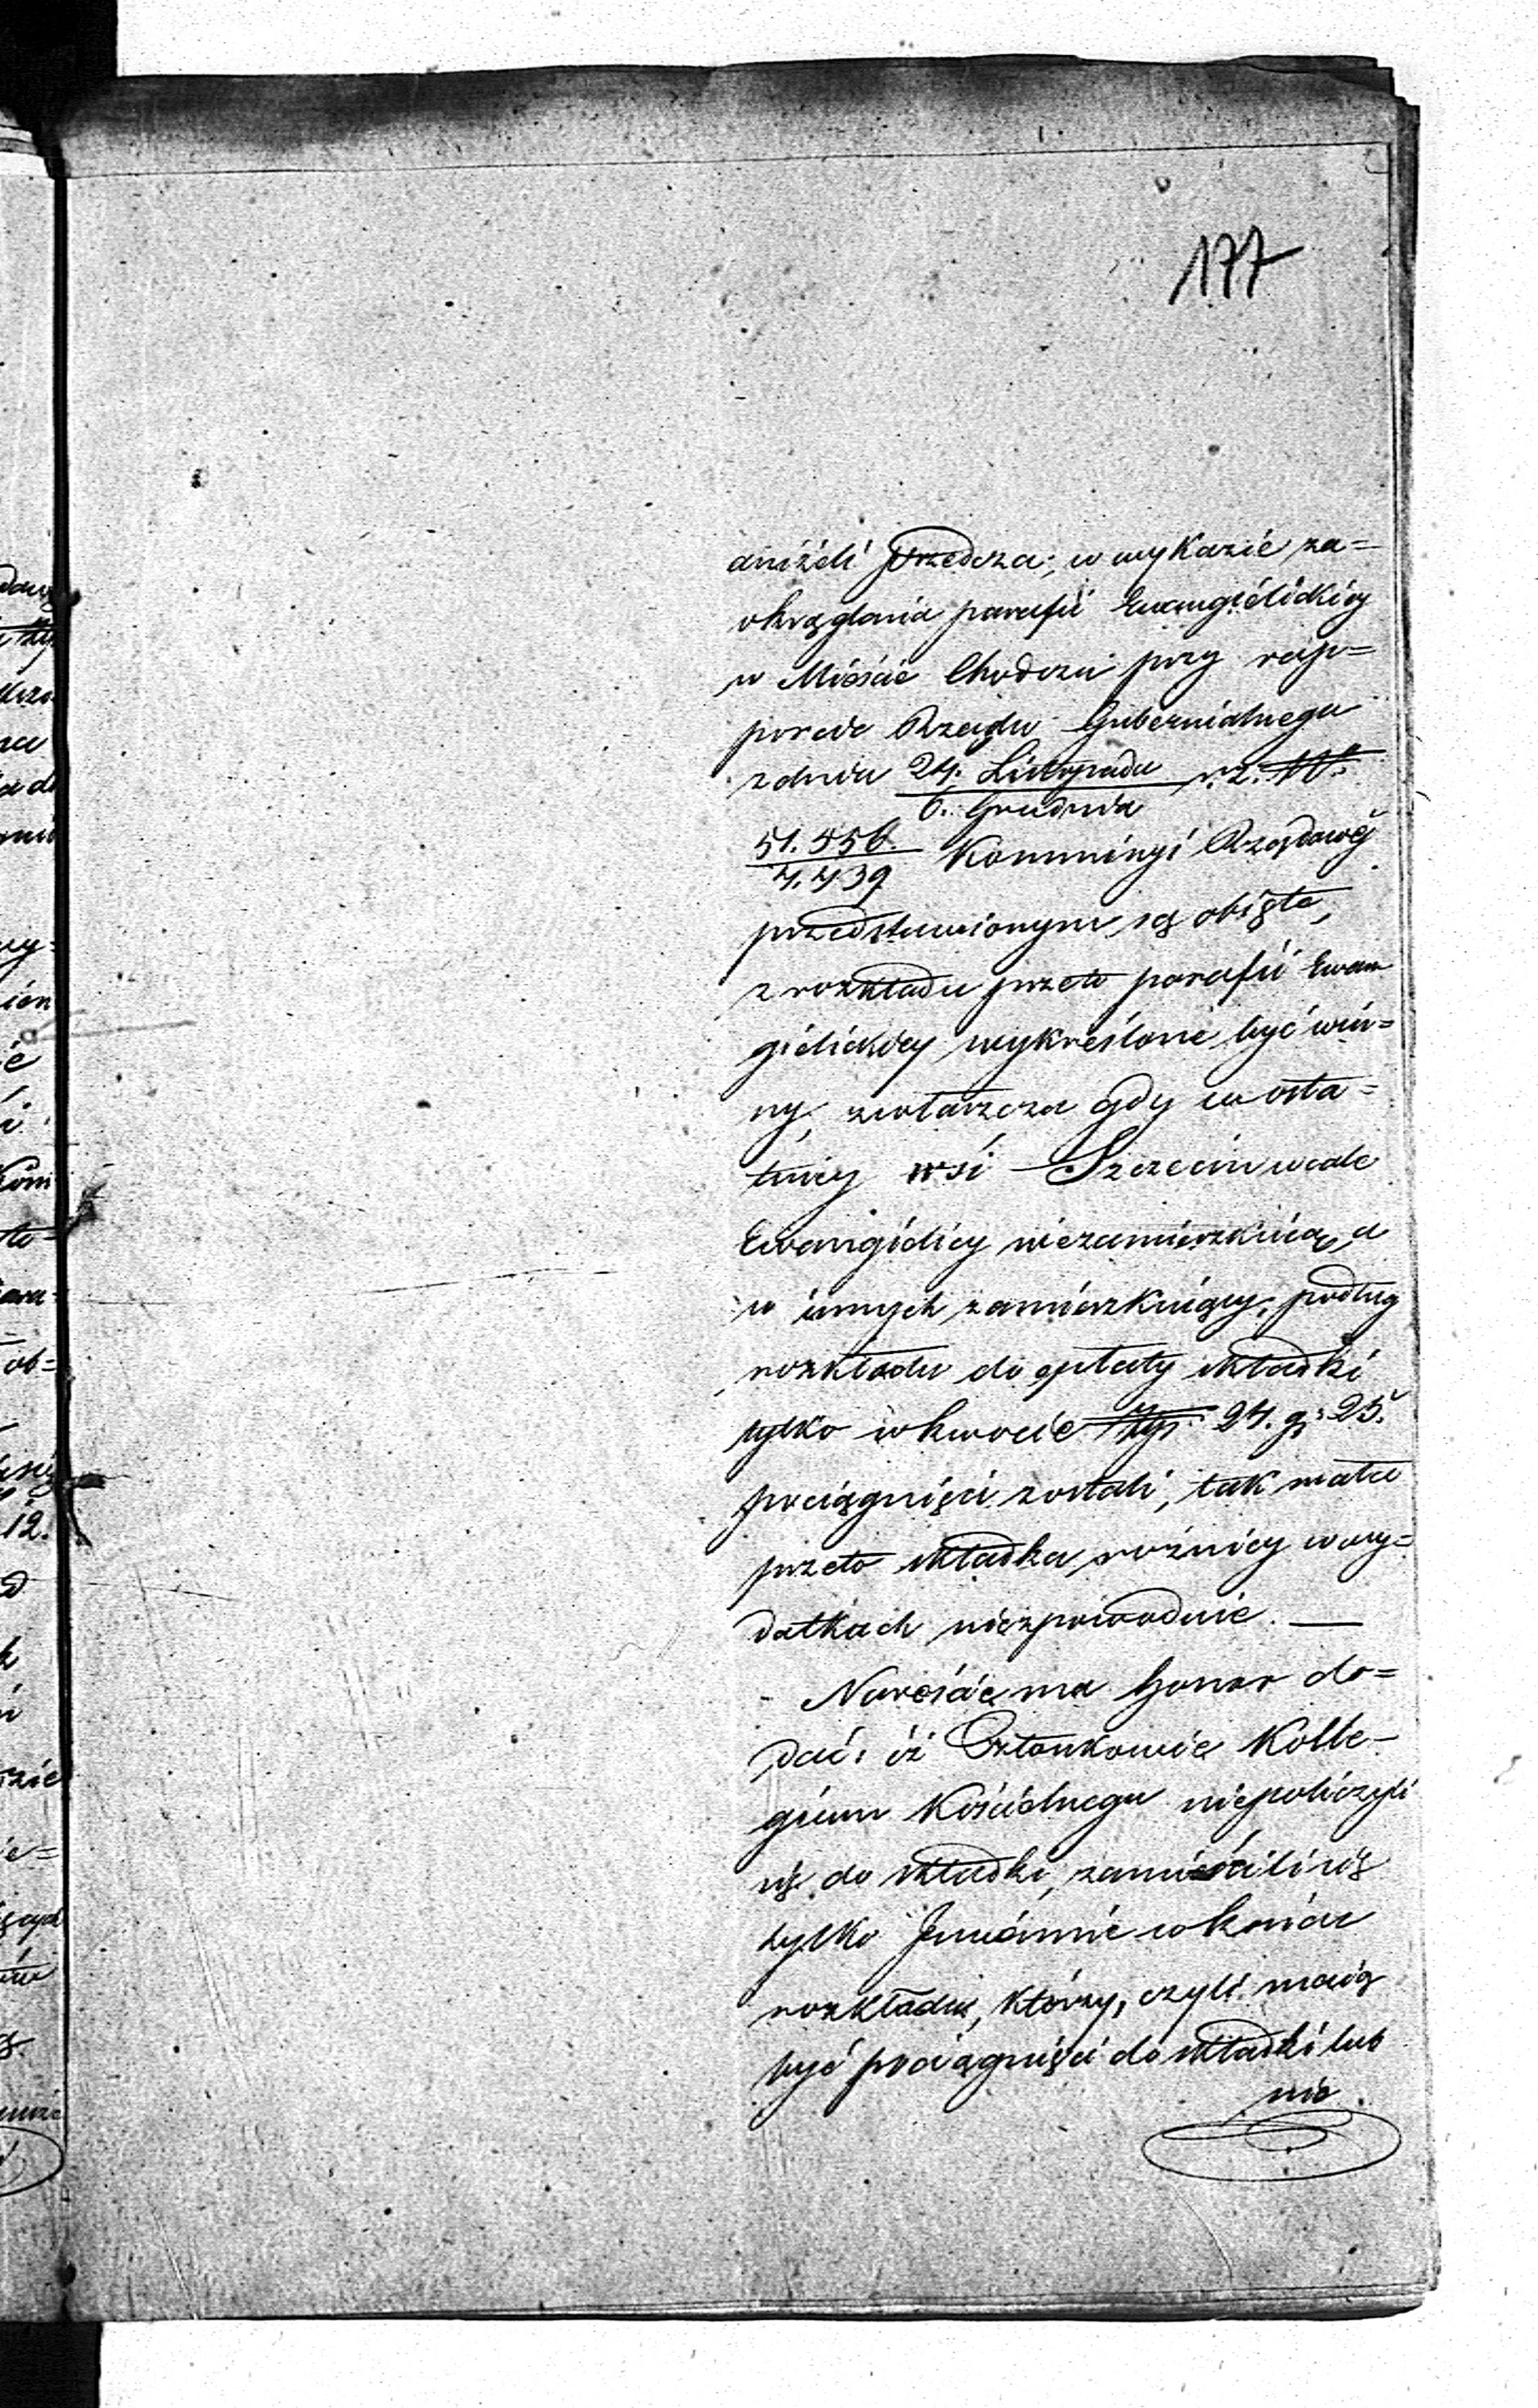 177
aniżeli Przedcza; w wykazie za=
okrąglania parafii Ewangielickiey
w Mieście Chodczu przy rap=
porcie Rządu Gubernialnego
z dnia 24. Listopada r. z. N°
6. Grudnia
51.556. Kommissyi Rządowéj
7.739
przedstawionym są obięte,
z rozkładu przeto parafii Ewan
gielickiey wykreślone być win=
ny, zwłaszcza gdy w osta=
tniey wsi Szczecin wcale
Ewangielicy niezamieszkuią, a
w innych zamieszkuiący, podług
rozkładu do opłaty składki
tylko w kwocie Złp. 24. g: 25.
pociągnięci zostali, tak mała
przeto składka różnicy w wy=
datkach niespowoduie. —
Nareście ma honor do=
dać, iż Członkowie Kolle-
gium Kościelnego niepoliczyli
się do składki, zamieścili się
tylko Jmiennie w końcu
rozkładu, którzy, czyli maią
być pociągnięci do składki lub
nie